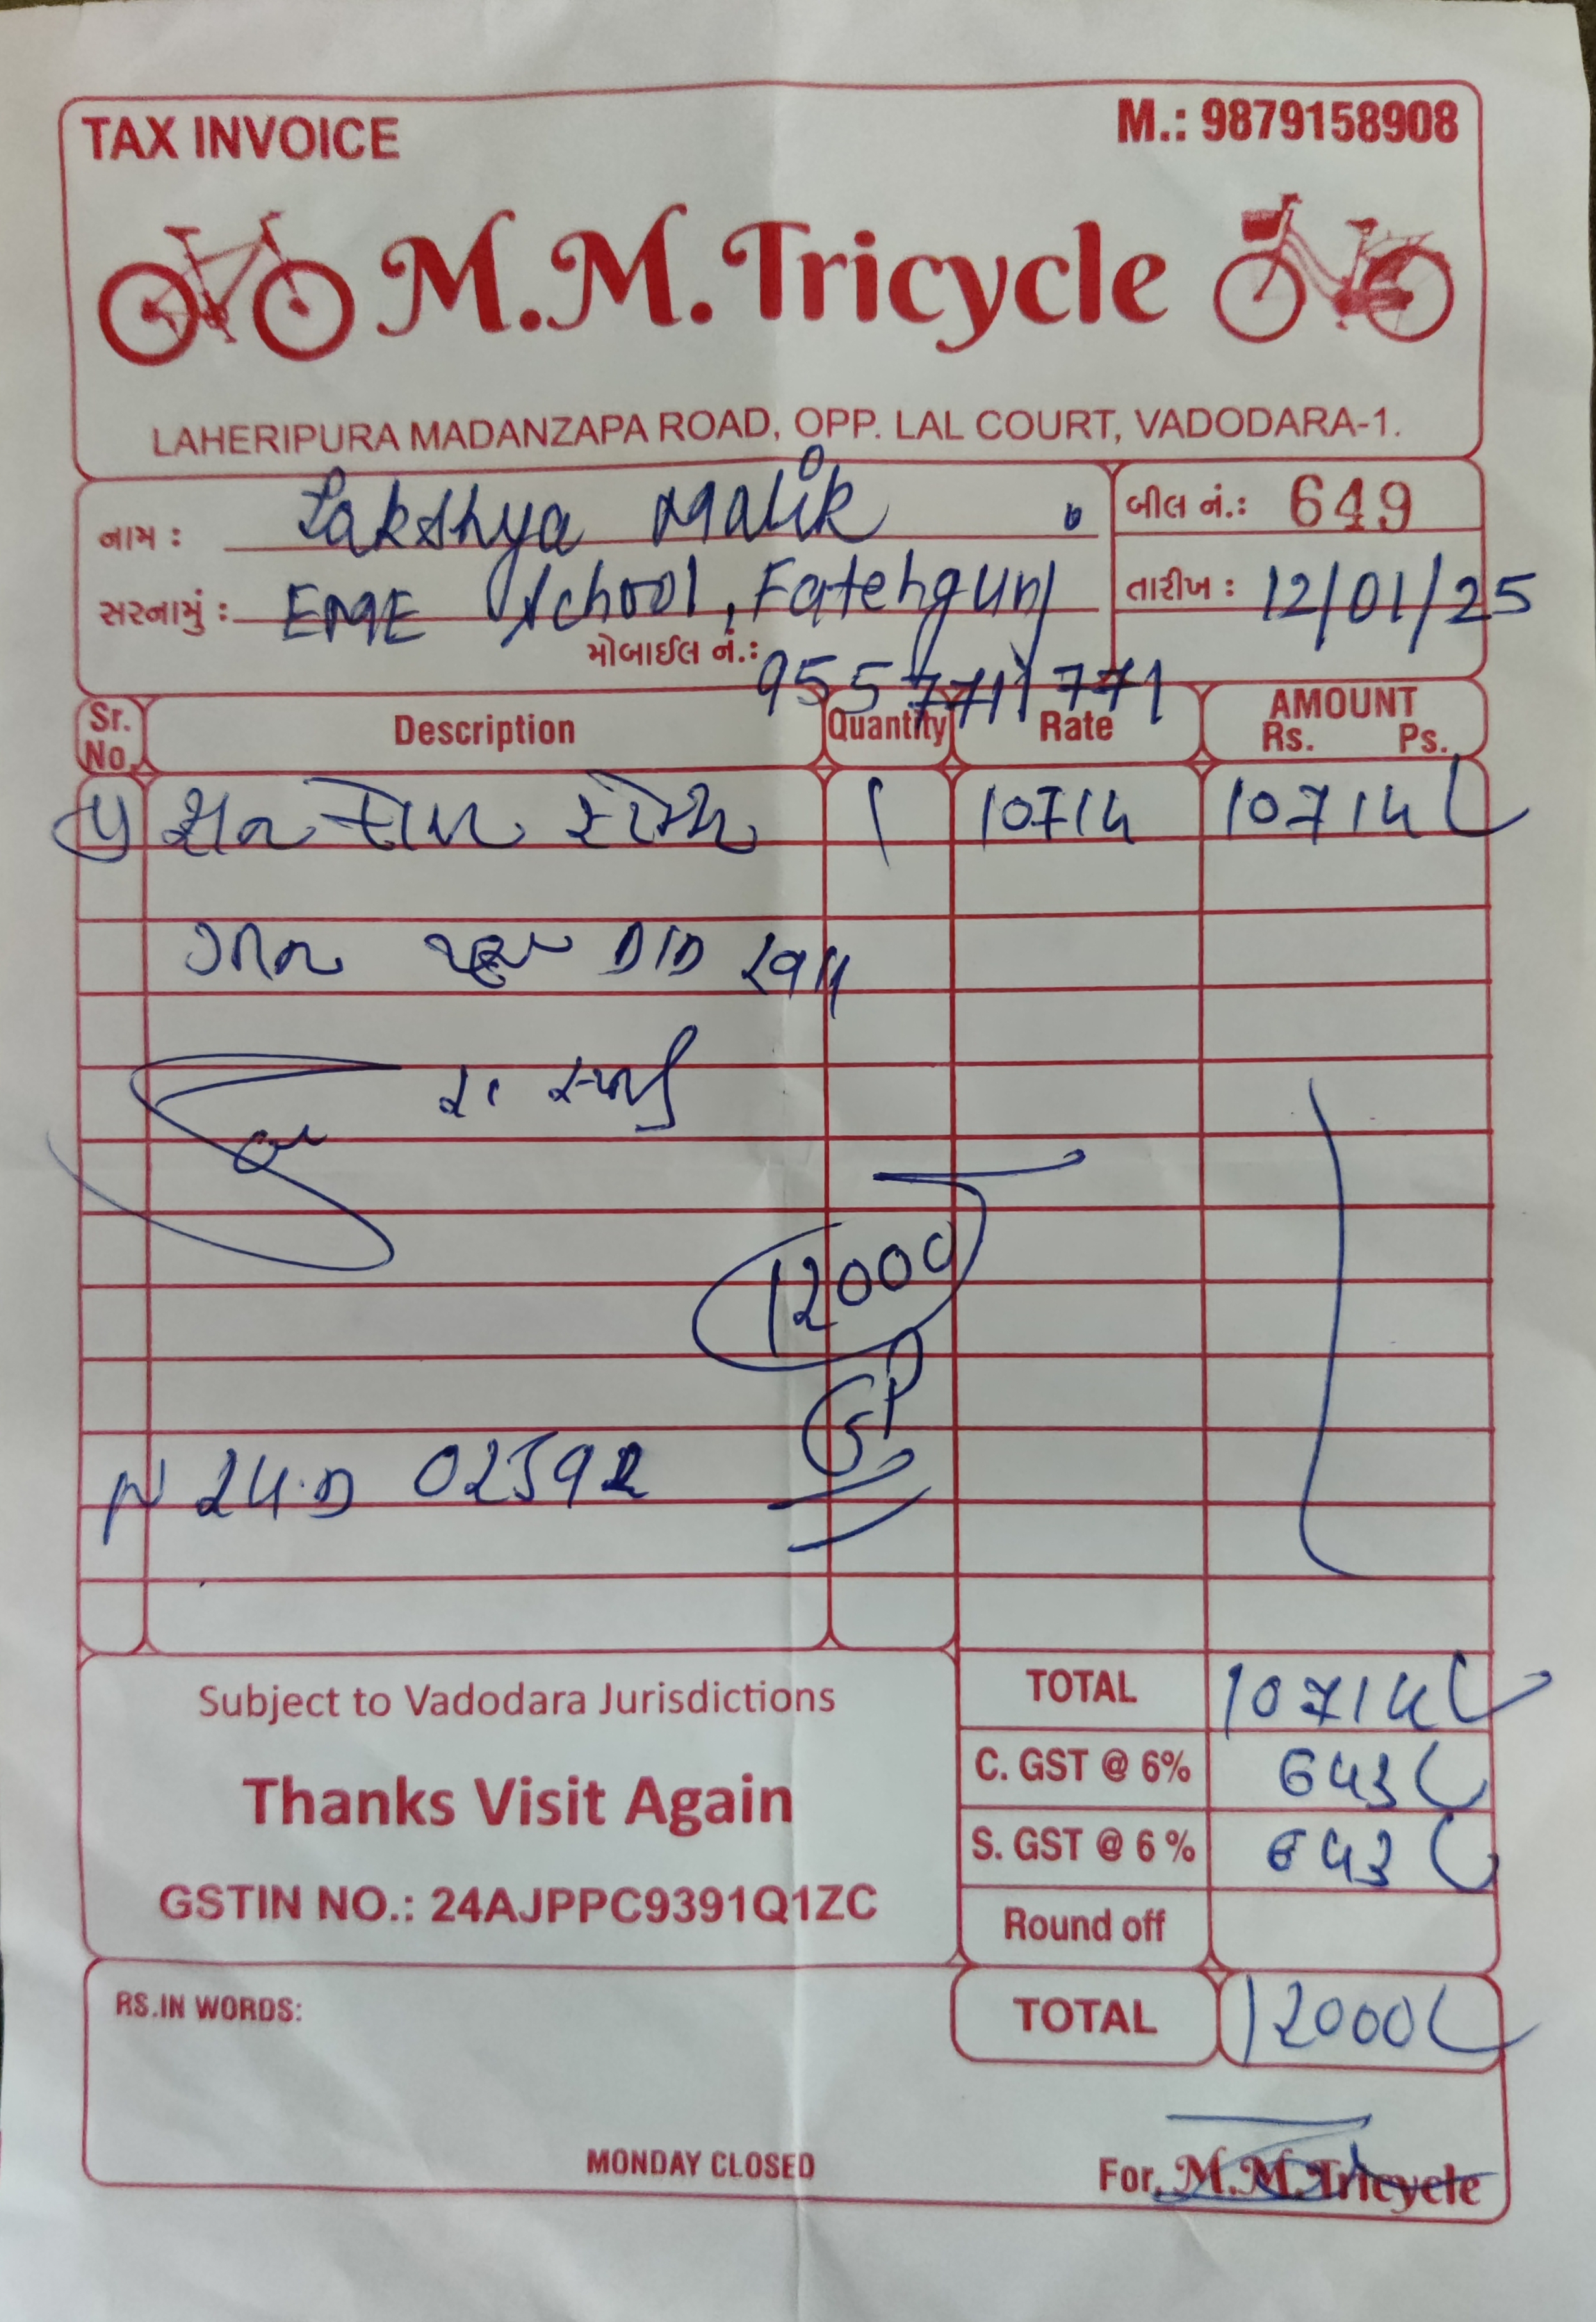 TAX INVOICE M.: 9879158908
M.M. Tricycle
LAHERIPURA MADANZAPA ROAD, OPP. LAL COURT, VADODARA-1.
નામ : Lakshya Malik
બીલ નં.: 649
સરનામું : EME School, Fatehgunj
તારીખ : 12/01/25
મોબાઈલ નં.: 9557711771
Sr. No. Description Quantity Rate AMOUNT Rs. Ps.
1 10714 10714
12000
GP
24.D 02592
Subject to Vadodara Jurisdictions
Thanks Visit Again
GSTIN NO.: 24AJPPC9391Q1ZC
TOTAL 10714
C. GST @ 6% 643
S. GST @ 6 % 643
Round off
RS.IN WORDS:
TOTAL 12000
MONDAY CLOSED
For, M.M. Tricycle